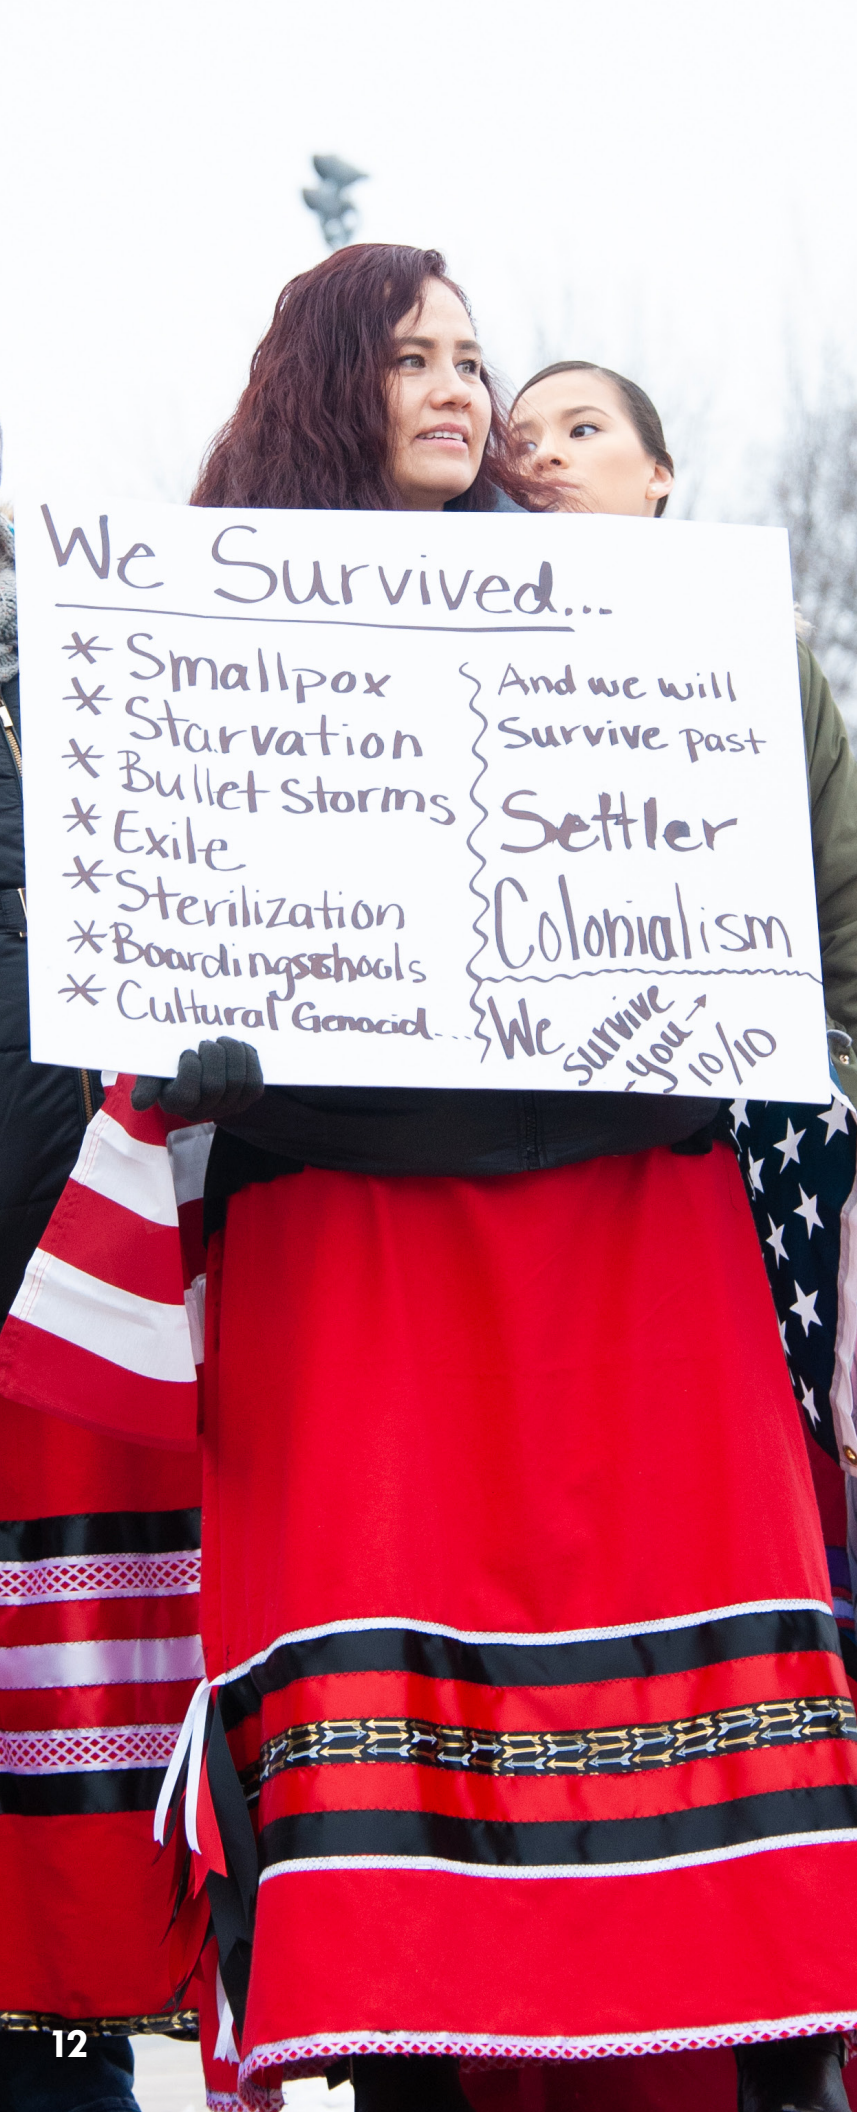 We Survived...
* Smallpox
* Starvation
* Bullet Storms
* Exile
* Sterilization
* Boardingschools
* Cultural Genocid...
And we will
Survive past
Settler
Colonialism
We survive
-you→
10/10
12